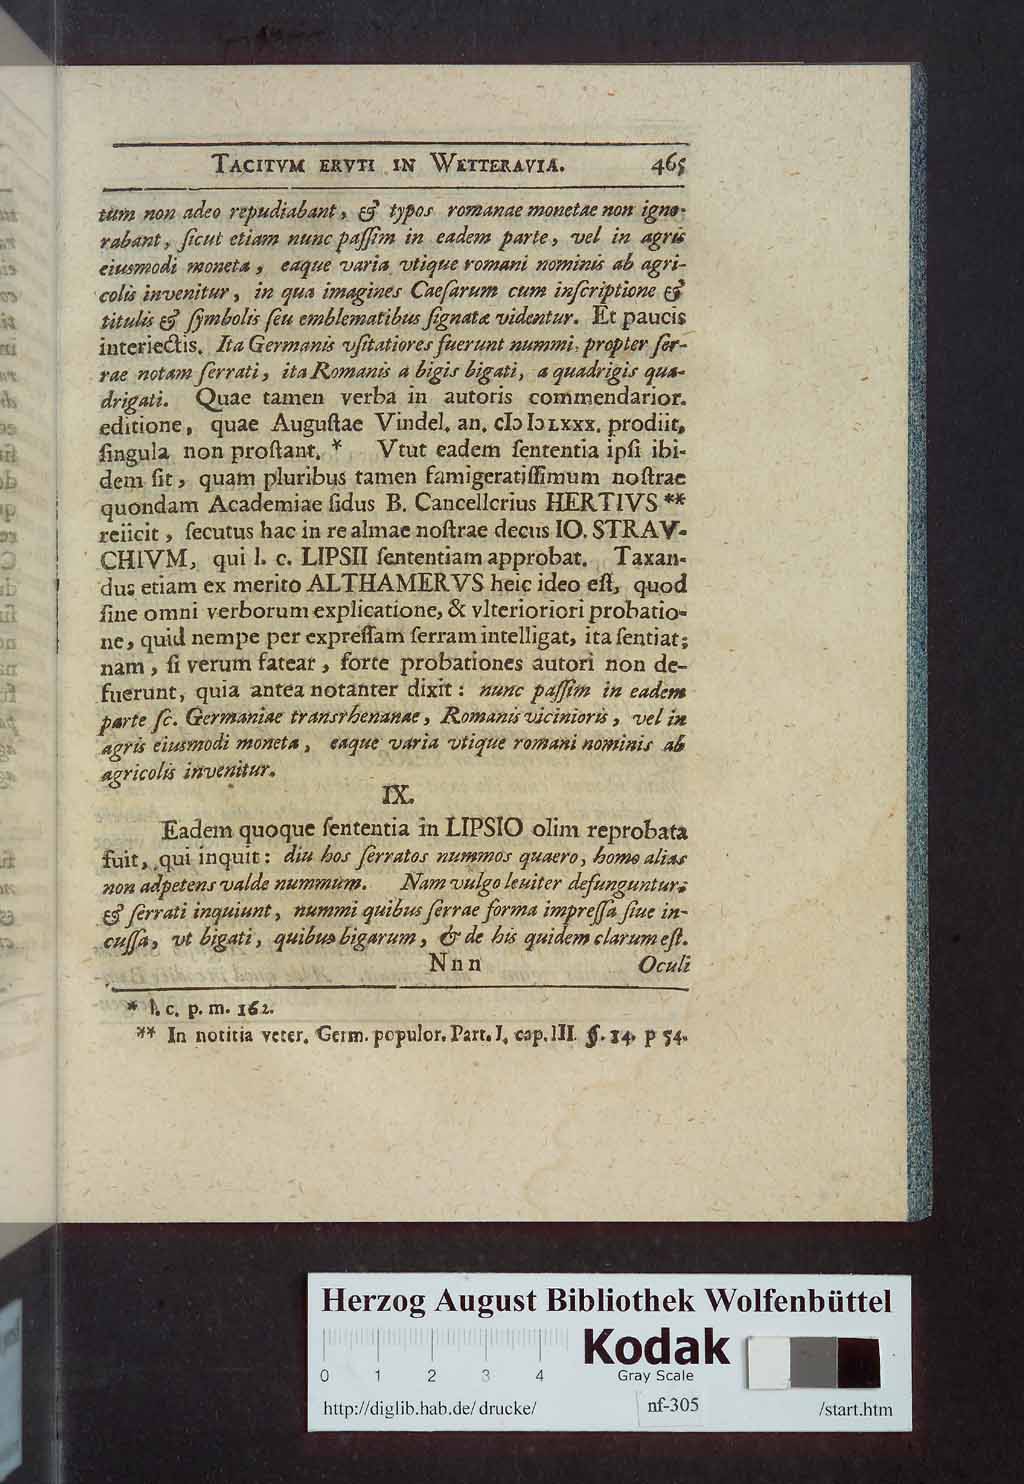 TACITVM ERVTI IN WETTERAVIA. 465
tum non adeo repudiabant, & typos romanae monetae non igno-
rabant, ſicut etiam nunc paſſim in eadem parte, vel in agris
eiusmodi moneta, eaque varia vtique romani nominis ab agri-
colis invenitur, in qua imagines Caeſarum cum inſcriptione &
titulis & ſymbolis ſeu emblematibus ſignatæ videntur. Et paucis
interiectis. Ita Germanis vſitatiores fuerunt nummi, propter ſer-
rae notam ſerrati, ita Romanis a bigis bigati, a quadrigis qua-
drigati. Quae tamen verba in autoris commendarior.
editione, quae Auguſtae Vindel. an. cIↄ Iↄ LXXX. prodiit,
ſingula non proſtant. * Vtut eadem ſententia ipſi ibi-
dem ſit, quam pluribus tamen famigeratiſſimum noſtrae
quondam Academiae ſidus B. Cancellcrius HERTIVS **
reiicit, ſecutus hac in re almae noſtrae decus IO. STRAV-
CHIVM, qui l. c. LIPSII ſententiam approbat. Taxan-
dus etiam ex merito ALTHAMERVS heic ideo eſt, quod
ſine omni verborum explicatione, & vlterioriori probatio-
ne, quid nempe per expreſſam ſerram intelligat, ita ſentiat;
nam, ſi verum fatear, forte probationes autori non de-
fuerunt, quia antea notanter dixit: nunc paſſim in eadem
parte ſc. Germaniae transrhenanae, Romanis vicinioris, vel in
agris eiusmodi moneta, eaque varia vtique romani nominis ab
agricolis invenitur.
IX.
Eadem quoque ſententia in LIPSIO olim reprobata
fuit, qui inquit: diu hos ſerratos nummos quaero, homo alias
non adpetens valde nummum. Nam vulgo leuiter defunguntur;
& ſerrati inquiunt, nummi quibus ſerrae forma impreſſa ſiue in-
cuſſa, vt bigati, quibus bigarum, & de his quidem clarum eſt.
Nnn Oculi
* l. c. p. m. 162.
** In notitia veter. Germ. populor. Part. I. cap. III. §. 14. p 54.
Herzog August Bibliothek Wolfenbüttel
Kodak
Gray Scale
0 1 2 3 4
http://diglib.hab.de/drucke/ nf-305 /start.htm